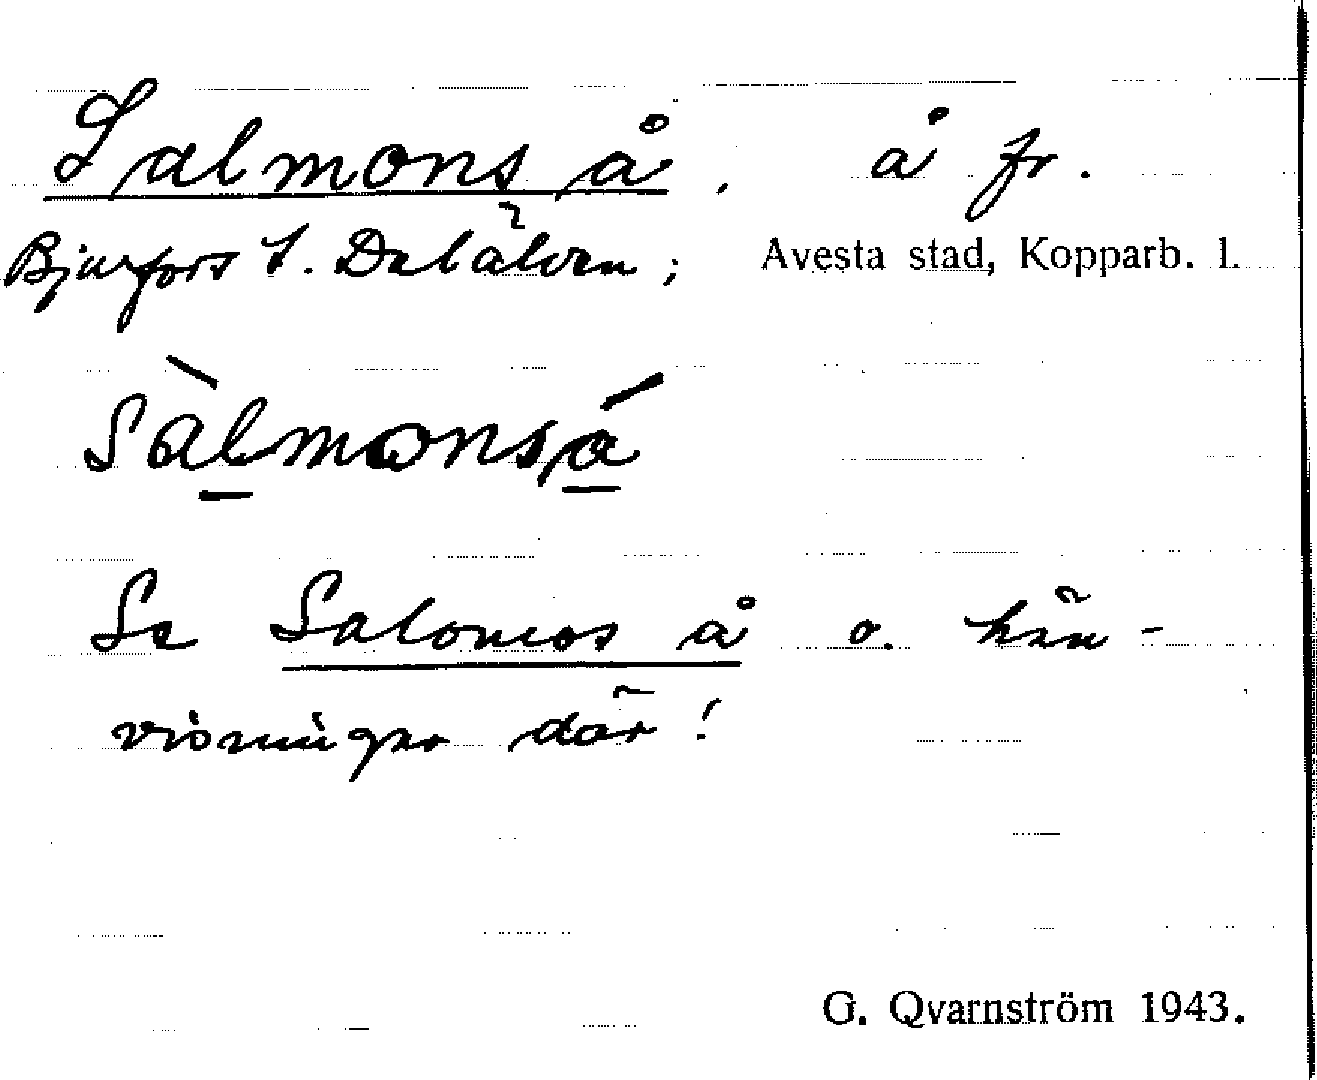 Salmons å, å fr.
Bjurfors t. Dalälven; Avesta stad, Kopparb. l.
Sàlmonsá
Se Salomos å o. hän-
visningar där!
G. Qvarnström 1943.